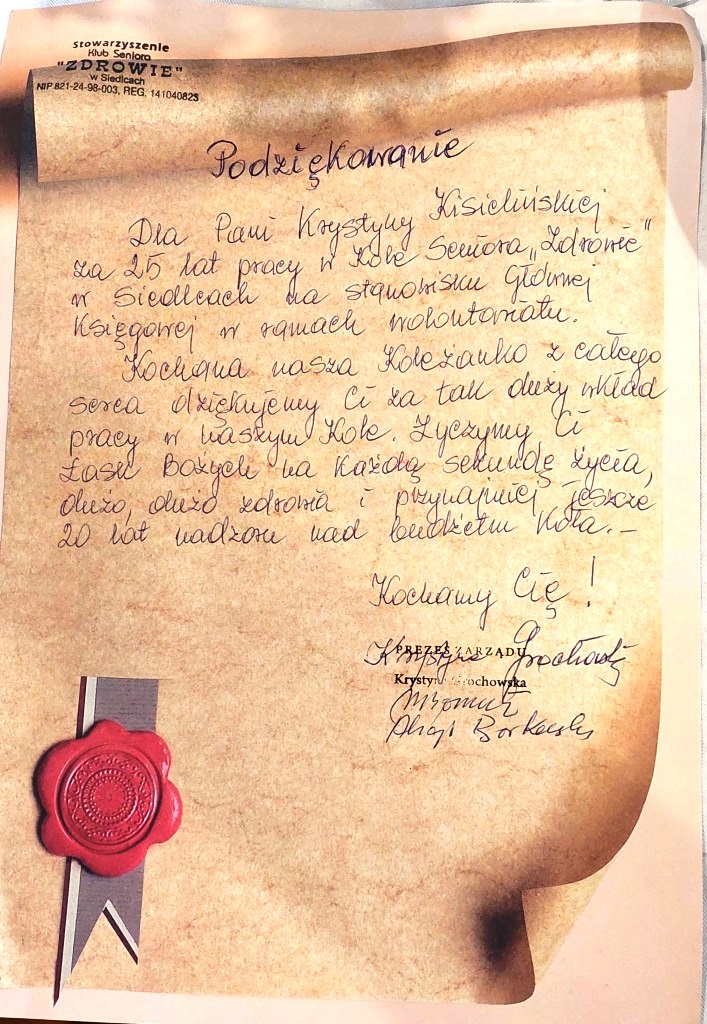 Stowarzyszenie
Klub Seniora
"ZDROWIE"
w Siedlcach
NIP 821-24-98-003, REG. 141040823
Podziękowanie
Dla Pani Krystyny Kisielińskiej
za 25 lat pracy w Kole Seniora „Zdrowie"
w Siedlcach na stanowisku Głównej
Księgowej w ramach wolontariatu.
Kochana nasza Koleżanko z całego
serca dziękujemy Ci za tak duży wkład
pracy w naszym Kole. Życzymy Ci
Łask Bożych na każdą sekundę życia,
dużo, dużo zdrowia i przynajmniej jeszcze
20 lat nadzoru nad budżetem Koła.-
Kochamy Cię!
PREZES ZARZĄDU
Krystyna Grochowska
Krystyna Grochowska
Borkowska